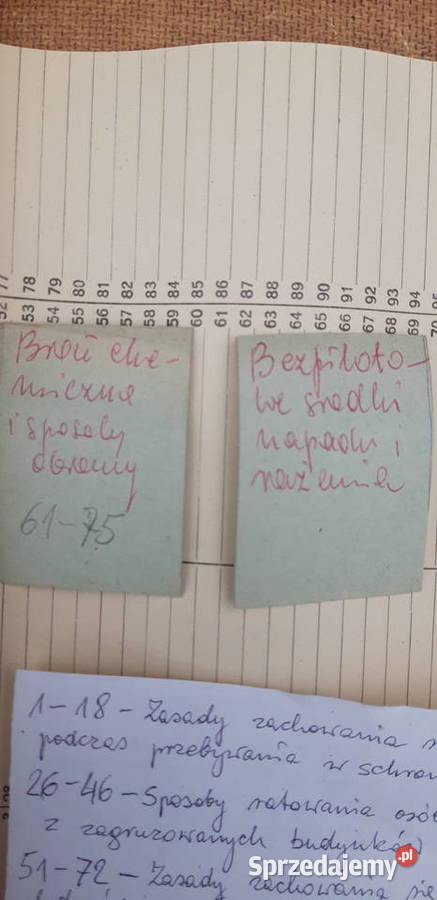 77 78 79 80 81 82 83 84 85 86 87 88 89 90 91 92 93 94 95
52 53 54 55 56 57 58 59 60 61 62 63 64 65 66 67 68 69 70
Broń che-
miczna
i sposoby
obrony
61-75
Bezpiloto-
we środki
napadu i
rażenia
1-18 - Zasady zachowania
podczas przebywania w schron
26-46 - Sposoby ratowania osób
z zagruzowanych budynków
51-72 - Zasady zachowania się
Sprzedajemy.pl